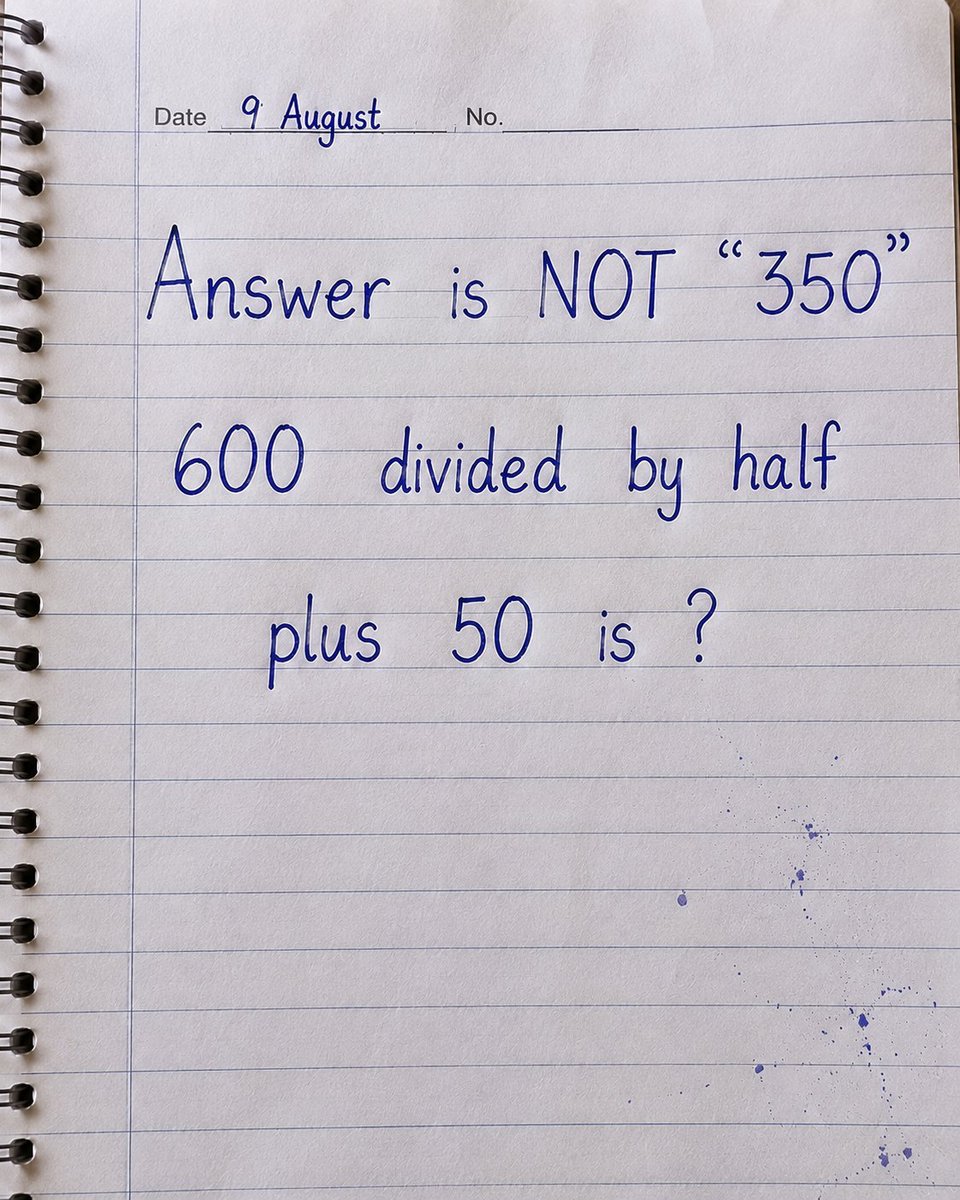 Date 9 August No.
Answer is NOT “350”
600 divided by half
plus 50 is ?